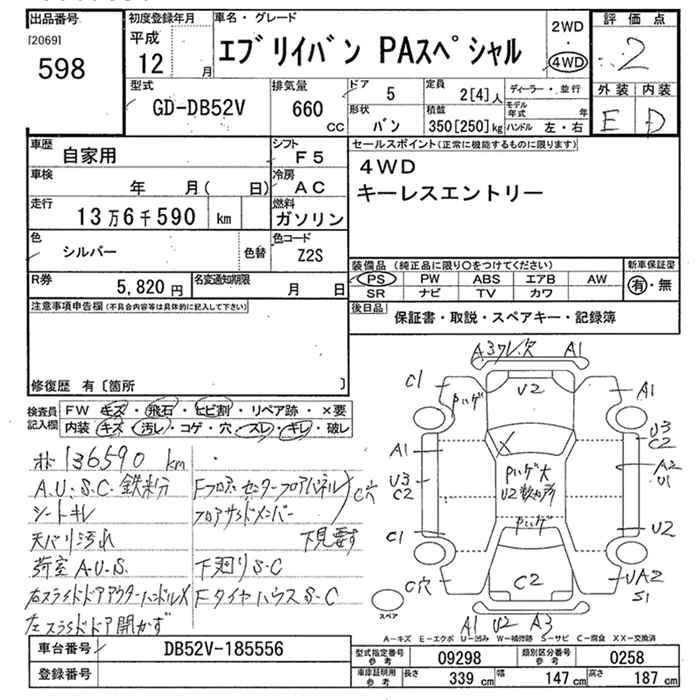 出品番号
[2069]
598
初度登録年月
平成
12 月
車名・グレード
エブリイバン PAスペシャル
2WD
・
4WD
評価点
2
外装 内装
E D
型式
GD-DB52V
排気量
660
cc
ドア
5
形状
バン
定員
2[4]人
積載
350[250]kg
ディーラー・並行
モデル年式 年
ハンドル 左・右
車歴
自家用
シフト
F5
車検
年 月( 日)
冷房
AC
走行
13万6千590 km
燃料
ガソリン
色
シルバー
色替
色コード
Z2S
R券
5,820円
名変通知期限
月 日
セールスポイント(正常に機能するものに限ります)
4WD
キーレスエントリー
装備品(純正品に限り○をつけてください)
PS PW ABS エアB AW
SR ナビ TV カワ
新車保証書
有・無
後日品
保証書・取説・スペアキー・記録簿
注意事項申告欄(不具合内容等は具体的に記入して下さい)
修復歴 有〔箇所 〕
検査員記入欄
FW キズ・飛石・ヒビ割・リペア跡・×要
内装 キズ・汚レ・コゲ・穴・スレ・キレ・破レ
136590 km
A.U.S.C.鉄粉
シートキレ
天バリ汚れ
荷室A.U.S.
右スライドドアアウターハンドルX
左スライドドア開かず
Fフロア、センターフロアパネル
フロアサイドメンバー
C穴
下見要す
下廻りS.C
FタイヤハウスS.C
A3ワレ、欠 A1
C1 Pいゲ U2 A1
U3
C2
A1
U3
C2
X
Pいゲ大
U2数ヶ所
Pいゲ
A2
U1
C1 U2
C穴 C2 UA2
S1
スペア
A1 U2 A3
A-キズ E-エクボ U-凹み W-補修跡 S-サビ C-腐食 XX-交換済
車台番号
DB52V-185556
登録番号
型式指定番号
参考
09298
類別区分番号
参考
0258
車庫証明用
参考
長さ 339 cm 幅 147 cm 高さ 187 cm